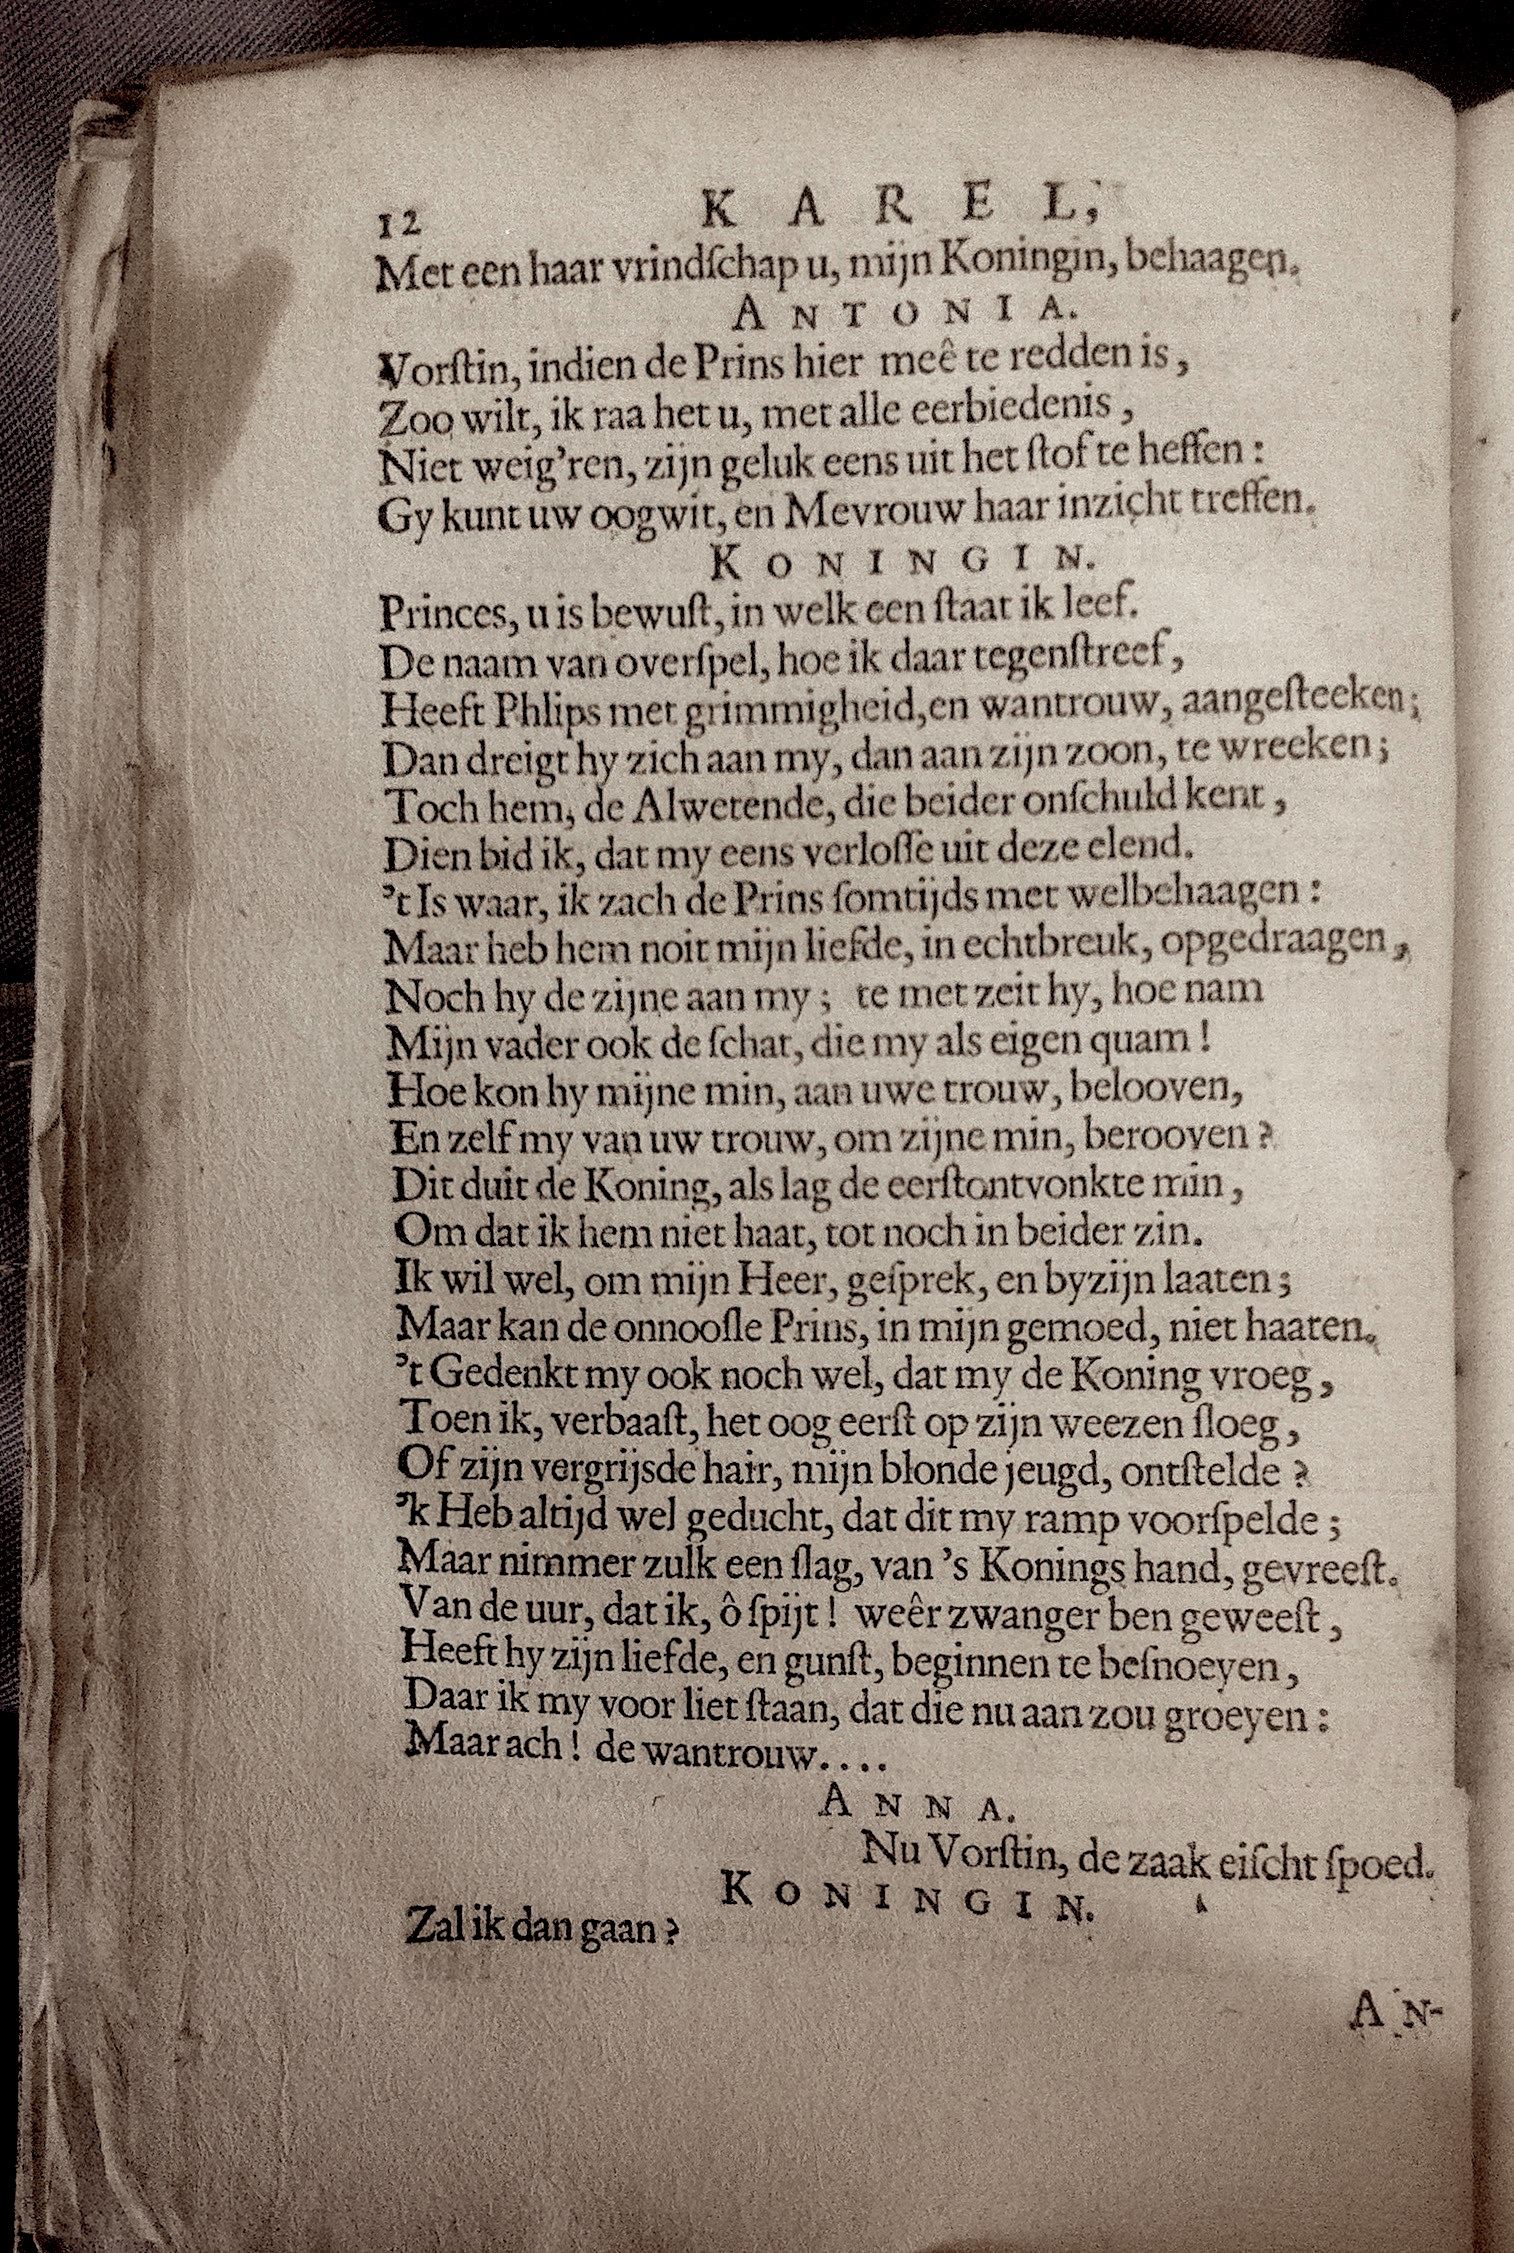 12 KAREL,
Met een haar vrindſchap u, mijn Koningin, behaagen.
ANTONIA.
Vorſtin, indien de Prins hier meê te redden is,
Zoo wilt, ik raa het u, met alle eerbiedenis,
Niet weig'ren, zijn geluk eens uit het ſtof te heffen:
Gy kunt uw oogwit, en Mevrouw haar inzicht treffen.
KONINGIN.
Princes, u is bewuſt, in welk een ſtaat ik leef.
De naam van overſpel, hoe ik daar tegenſtreef,
Heeft Phlips met grimmigheid, en wantrouw, aangeſteeken;
Dan dreigt hy zich aan my, dan aan zijn zoon, te wreeken;
Toch hem, de Alwetende, die beider onſchuld kent,
Dien bid ik, dat my eens verloſſe uit deze elend.
't Is waar, ik zach de Prins ſomtijds met welbehaagen:
Maar heb hem noit mijn liefde, in echtbreuk, opgedraagen,
Noch hy de zijne aan my; te met zeit hy, hoe nam
Mijn vader ook de ſchat, die my als eigen quam!
Hoe kon hy mijne min, aan uwe trouw, belooven,
En zelf my van uw trouw, om zijne min, berooven?
Dit duit de Koning, als lag de eerſtontvonkte min,
Om dat ik hem niet haat, tot noch in beider zin.
Ik wil wel, om mijn Heer, geſprek, en byzijn laaten;
Maar kan de onnooſle Prins, in mijn gemoed, niet haaten.
't Gedenkt my ook noch wel, dat my de Koning vroeg,
Toen ik, verbaaſt, het oog eerſt op zijn weezen ſloeg,
Of zijn vergrijsde hair, mijn blonde jeugd, ontſtelde?
'k Heb altijd wel geducht, dat dit my ramp voorſpelde;
Maar nimmer zulk een ſlag, van 's Konings hand, gevreeſt.
Van de uur, dat ik, ô ſpijt! weêr zwanger ben geweeſt,
Heeft hy zijn liefde, en gunſt, beginnen te beſnoeyen,
Daar ik my voor liet ſtaan, dat die nu aan zou groeyen:
Maar ach! de wantrouw....
ANNA.
Nu Vorſtin, de zaak eiſcht ſpoed.
KONINGIN.
Zal ik dan gaan?
AN-